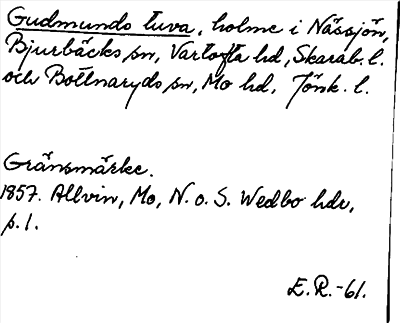 Gudmunds tuva, holme i Nässjön,
Bjurbäcks sn, Vartofta hd, Skarab. l.
och Bottnaryds sn, Mo hd, Jönk. l.
Gränsmärke.
1857. Allvin, Mo, N. o. S. Wedbo hdr,
p. 1.
E.R.-61.